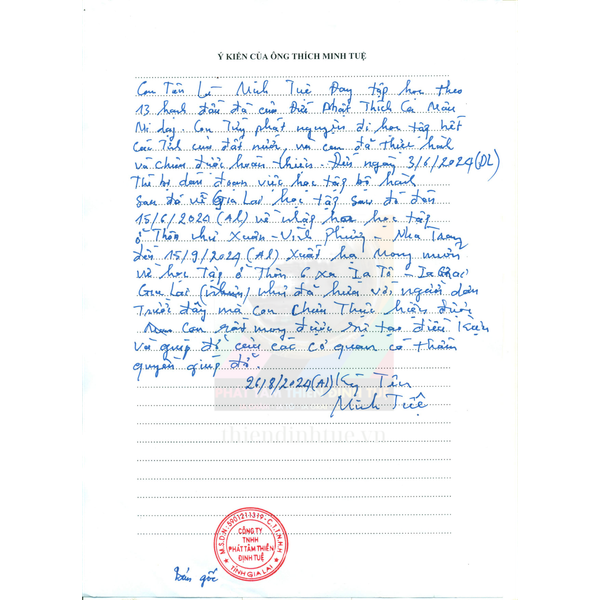 Ý KIẾN CỦA ÔNG THÍCH MINH TUỆ
Con Tên Là Minh Tuệ Đang tập học theo
13 hạnh đầu đà của Đức Phật Thích Ca Mâu
Ni dạy. Con Tùy phát nguyện đi học tập hết
Các Tỉnh của đất nước, và con đã thực hành
và chưa được hoàn thiện. Đến ngày 3/6/2024 (DL)
Thì bị dán đoạn việc học tập bộ hành
Sau đó về Gia Lai học tập sau đó đến
15/6/2024 (AL) về nhập học tập
ở Thôn chư Xuân - Vĩnh Phương - Nha Trang
đến 15/9/2024 (AL) Xuất hạ mong muốn
về học Tập ở Thôn 6 xã Ia Tô - Ia Grai
Gia Lai như đã hứa với người dân
Trước đây mà Con Chưa Thực hiện được
Con rất mong được sự tạo điều kiện
và giúp đỡ của các cơ quan có thẩm
quyền giúp đỡ.
26/8/2024 (AL) Ký Tên
Minh Tuệ
PHÁT TÂM THIỀN ĐỊNH TUỆ
thiendinhtue.vn
M.S.D.N: 5901213319 - C.T.T.N.H.H
CÔNG TY
TNHH
PHÁT TÂM THIỀN
ĐỊNH TUỆ
TỈNH GIA LAI
Bản gốc